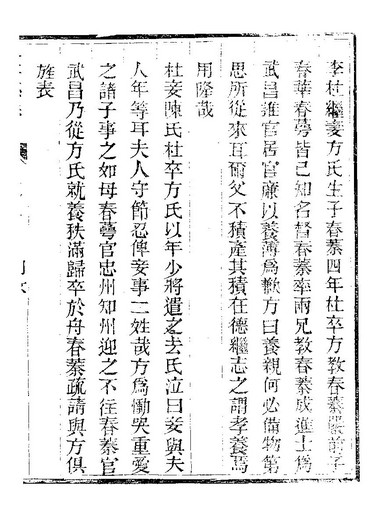 李杜繼妻方氏生子春蓁四年杜卒方教春蓁
春華春蕚皆已知名督春蓁率兩兄教春蓁成進士爲
武昌推官居官廉以養薄爲歉方曰養親何必備物第
思所從來耳爾父不積產其積在德繼志之謂孝養焉
用隆哉
杜妾陳氏杜卒方氏以年少將遣之去氏泣曰妾與夫
人年等耳夫人守節忍俾妾事二姓哉方爲慟哭重愛
之諸子事之如母春蕚官忠州知州迎之不往春蓁官
武昌乃從方氏就養秩滿歸卒於舟春蓁疏請與方俱
旌表